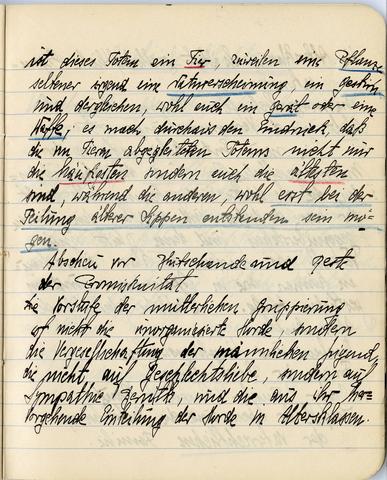 ist dieses Totem ein Tier, zuweilen eine Pflanze
seltener irgend eine Naturerscheinung, ein Gestirn
und dergleichen, wohl auch ein Gerät oder eine
Waffe; es macht durchaus den Eindruck, daß
die von Tieren abgeleiteten Totems nicht nur
die häufigsten sondern auch die ältesten
sind, während die anderen, wohl erst bei der
Teilung älterer Sippen entstanden sein mö-
gen.
Abscheu vor Blutschande und
der Promiskuität
Die Vorstufe der mutterlichen Gruppierung
ist nicht die unorganisierte Horde, sondern
die Vergesellschaftung der männlichen Jugend,
die nicht auf Geschlechtsliebe, sondern auf
Sympathie beruht, und die aus ihr her-
vorgehende Einteilung der Horde in Altersklassen.